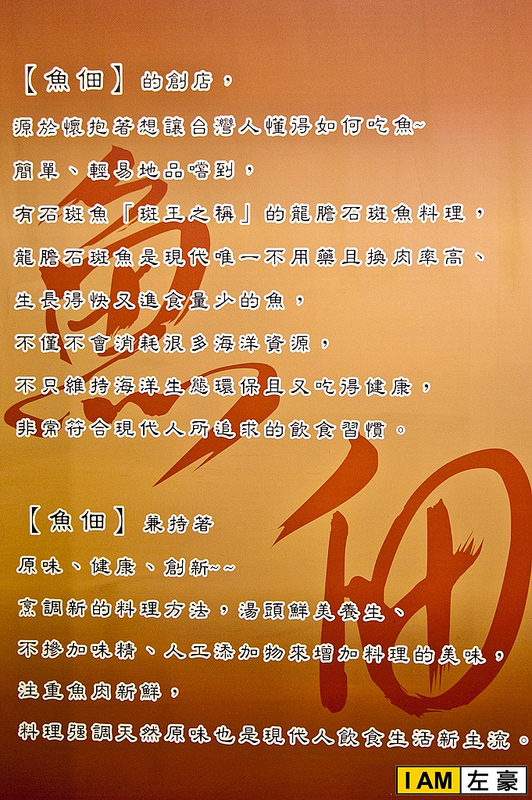 【魚佃】的創店，
源於懷抱著想讓台灣人懂得如何吃魚~
簡單、輕易地品嚐到，
有石斑魚「斑王之稱」的龍膽石斑魚料理，
龍膽石斑魚是現代唯一不用藥且換肉率高、
生長得快又進食量少的魚，
不僅不會消耗很多海洋資源，
不只維持海洋生態環保且又吃得健康，
非常符合現代人所追求的飲食習慣。
【魚佃】兼持著
原味、健康、創新~~
烹調新的料理方法，湯頭鮮美養生、
不摻加味精、人工添加物來增加料理的美味，
注重魚肉新鮮，
料理強調天然原味也是現代人飲食生活新主流。
魚
佃
I AM 左豪